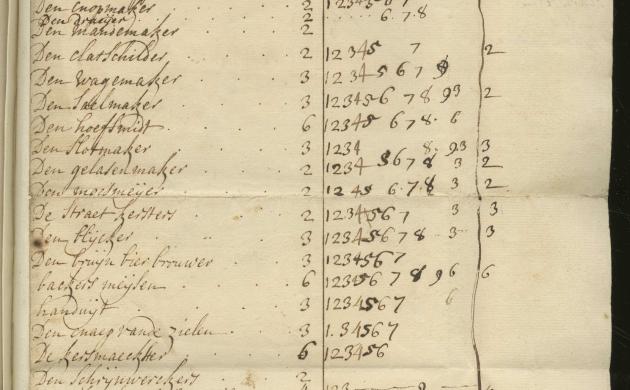 Den cnopmaker 2 12345 6 7
Den draijer 2 6.7.8
Den mandemaker 2
Den clatschilder 2 12345 7 2
Den wagemaker 3 12345 6 7 9
Den Saelmaker 3 123456 7 8 93 2
Den hoefsmidt 6 12345 678. 6
Den Slotmaker 3 1234 8. 93 3
Den gelasenmaker 2 1234 5678 3 2
Den moesmeijer 2 1245 6.7.8 3 2
De Straet kersters 2 123456 7 3 3
Den blijcker 3 123456 7 8 3 3
Den bruijn bier brouwer 3 1234567
backers meijsen 6 123456 7 8 9 6 6
handuijt 3 1234567 6
Den cnaep vande zielen 3 1.34567
De kersmaeckster 6 123456
Den Schrijnwerckers 2